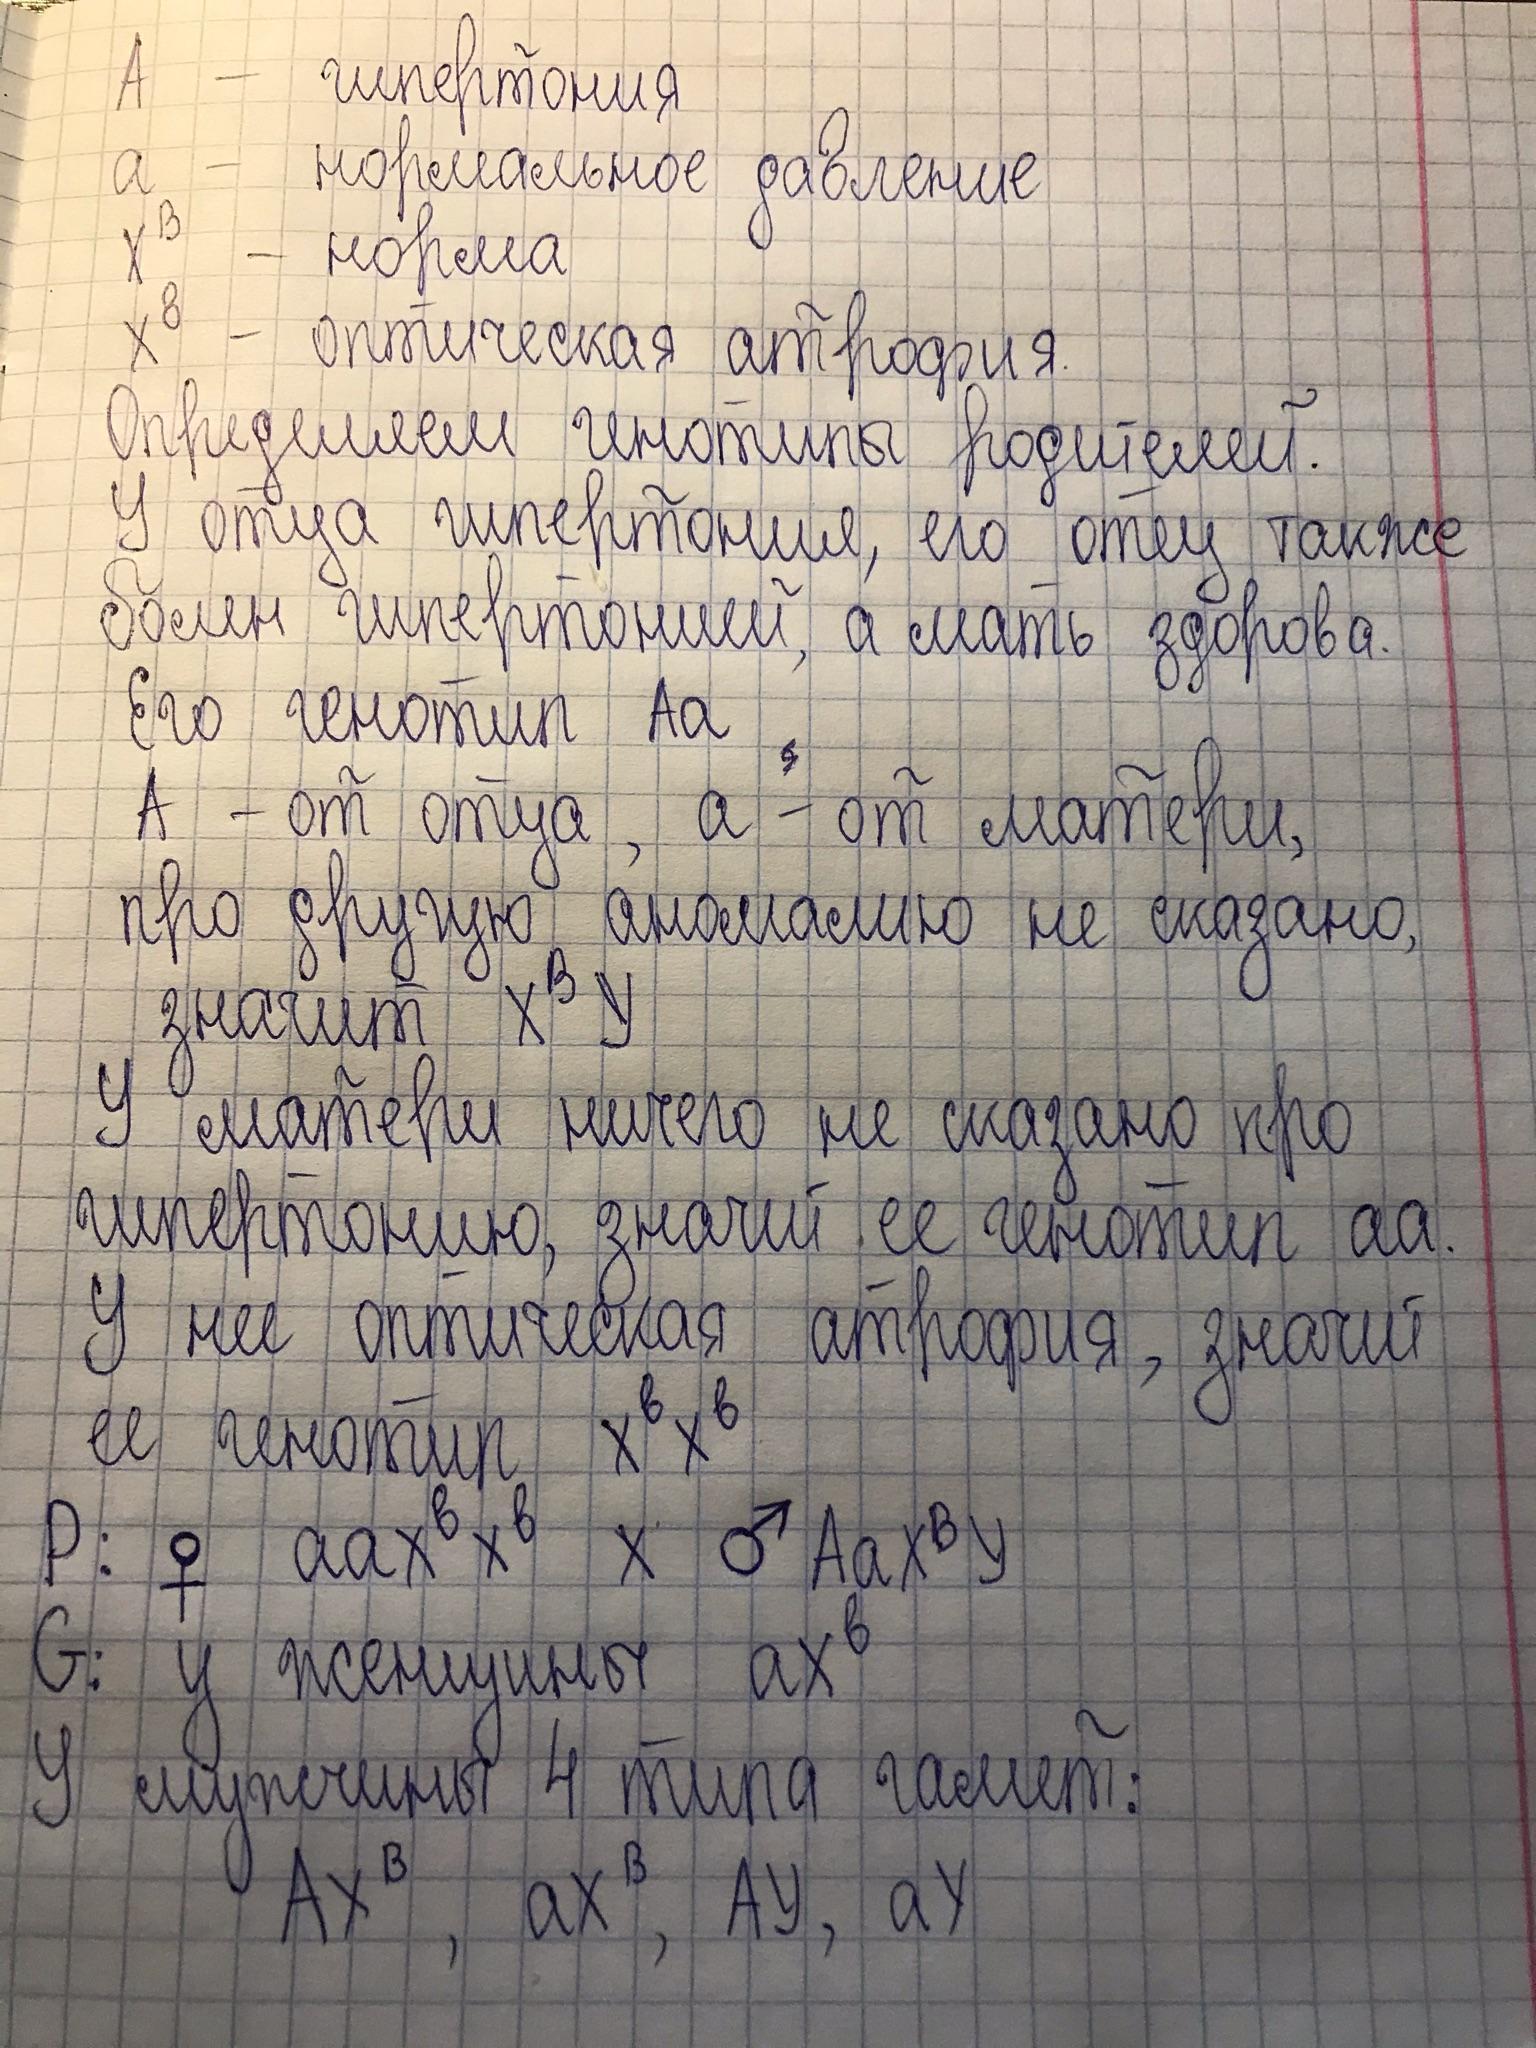 А – гипертония
а – нормальное давление
Xᴮ – норма
Xᵇ – оптическая атрофия.
Определяем генотипы родителей.
У отца гипертония, его отец также
болен гипертонией, а мать здорова.
Его генотип Аа
А – от отца, а – от матери,
про другую аномалию не сказано,
значит XᴮУ
У матери ничего не сказано про
гипертонию, значит ее генотип аа.
У нее оптическая атрофия, значит
ее генотип XᵇXᵇ
P: ♀ ааXᵇXᵇ х ♂ АаXᴮУ
G: у женщины аXᵇ
У мужчины 4 типа гамет:
АXᴮ, аXᴮ, АУ, аУ